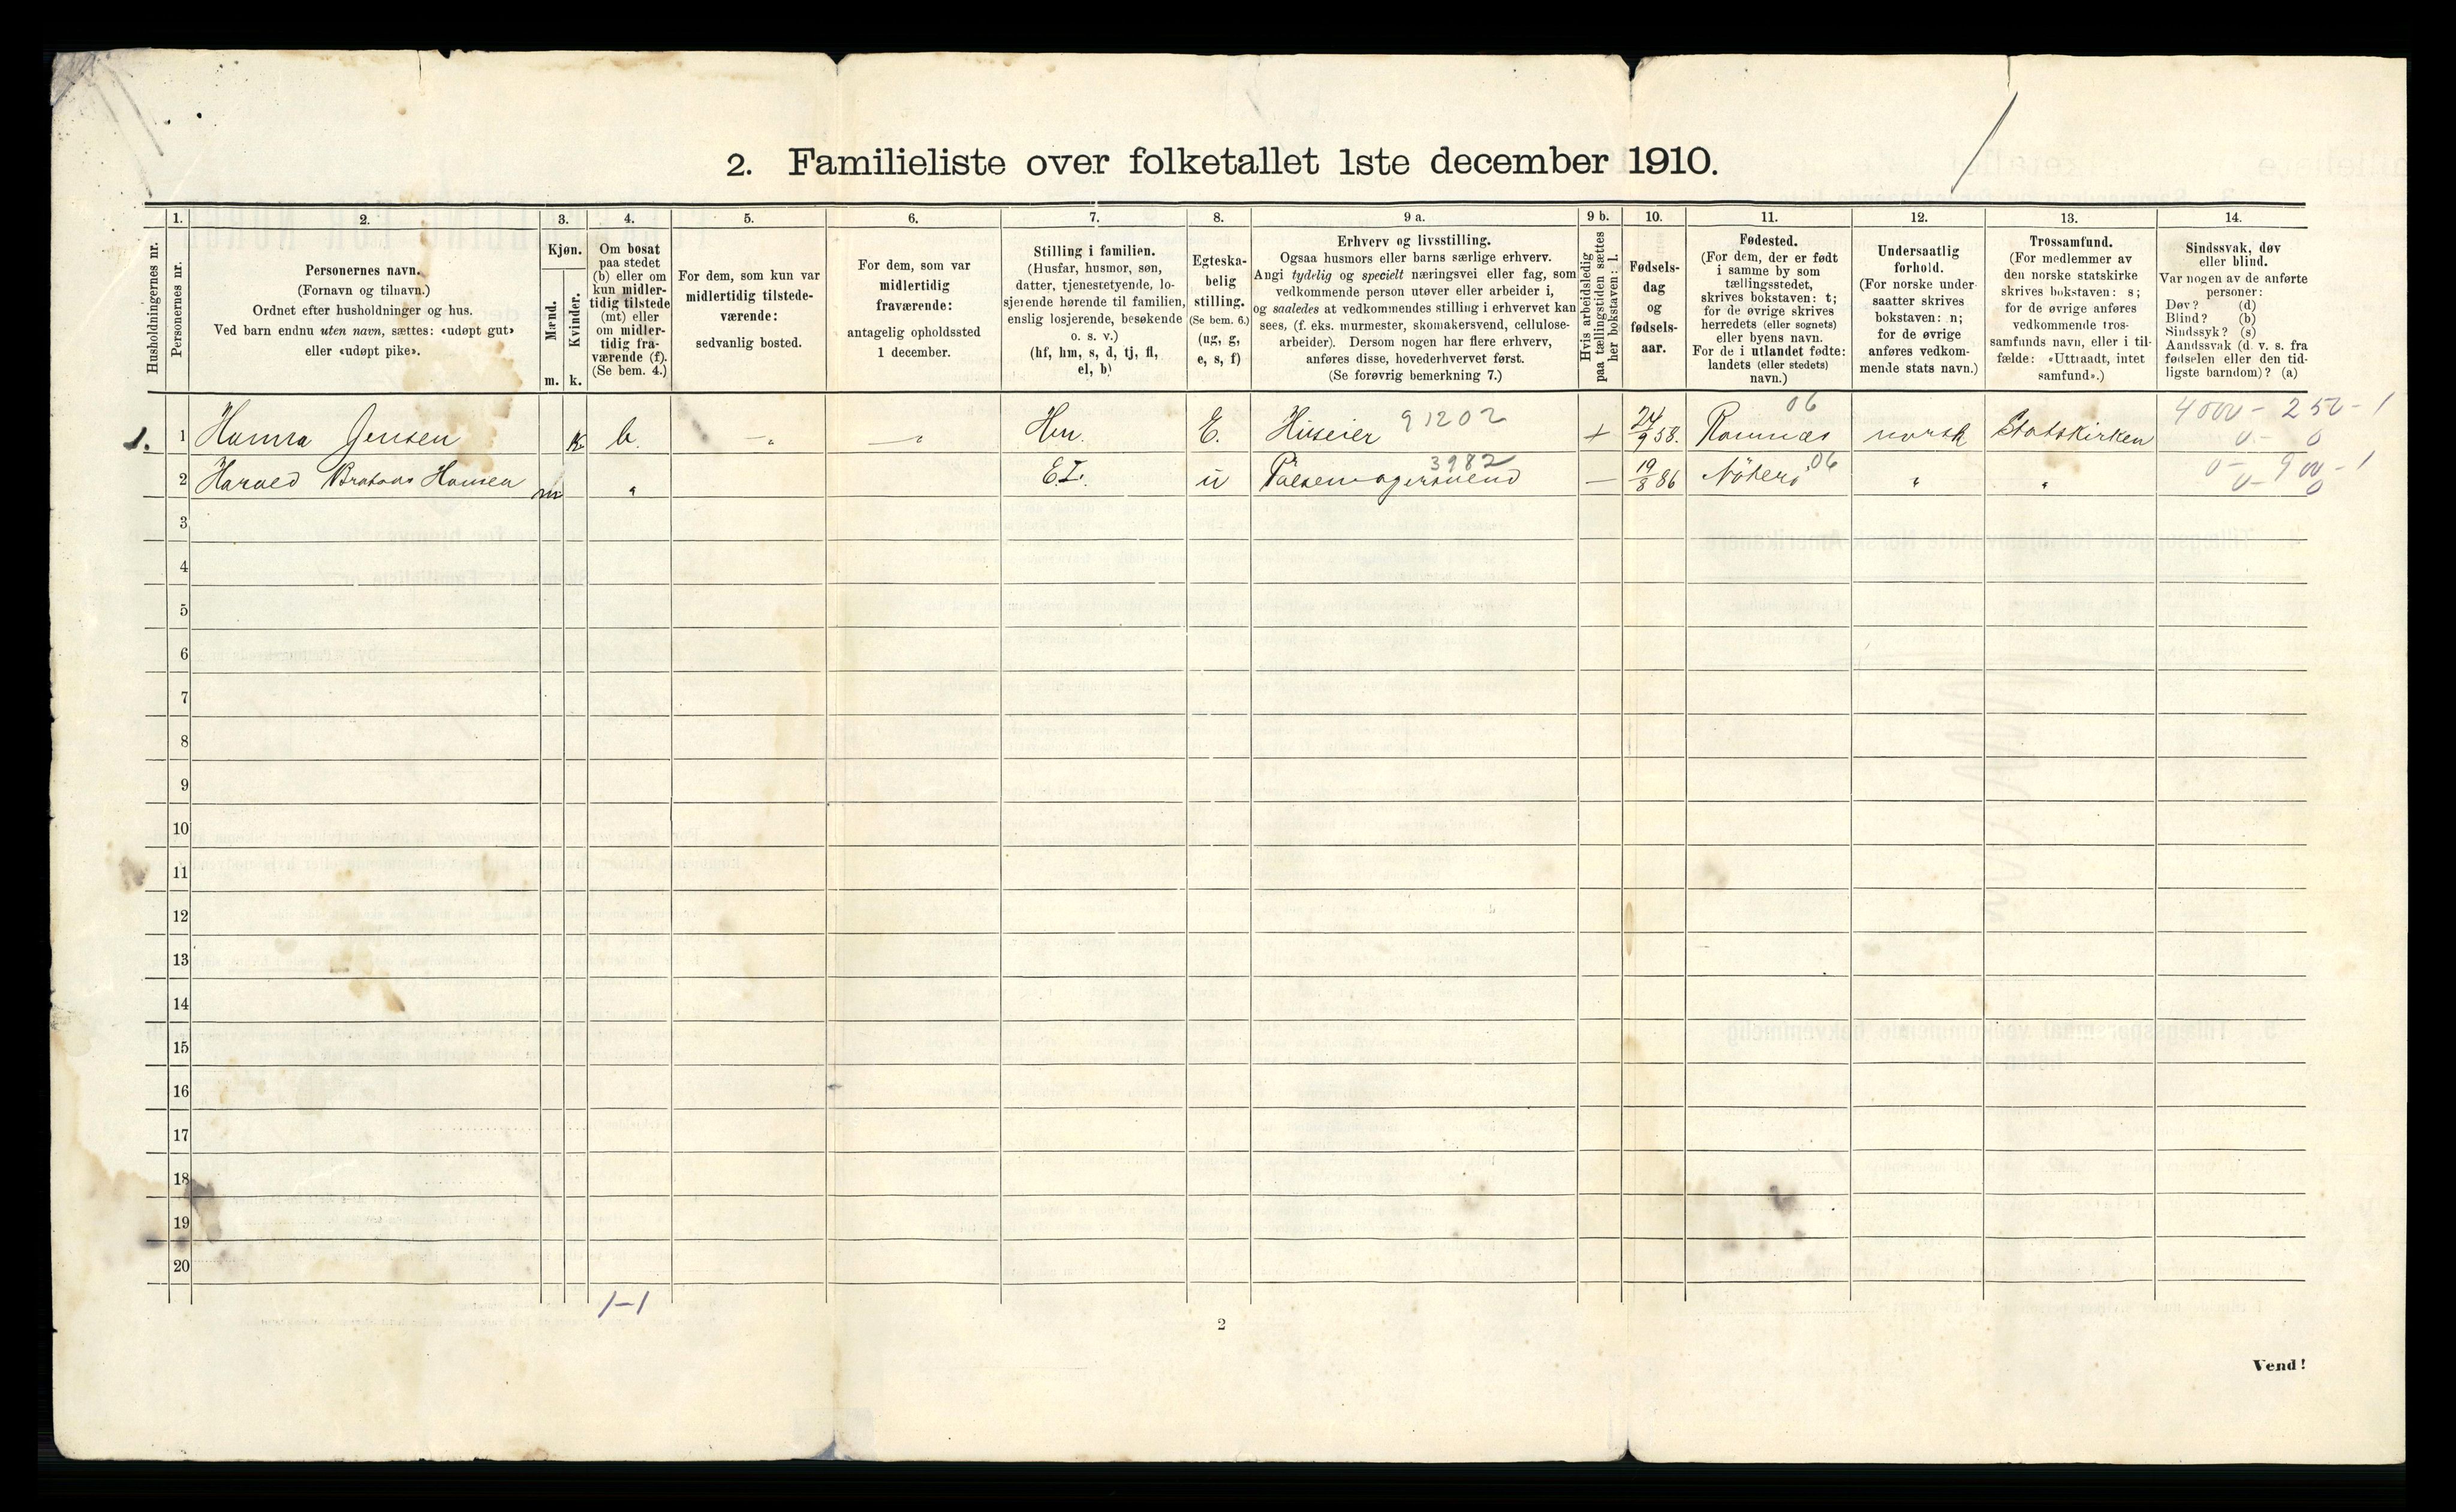 2. Familieliste over folketallet 1ste december 1910.
Husholdningernes nr.
1.
Personernes nr.
2.
Personernes navn.
(Fornavn og tilnavn.)
Ordnet efter husholdninger og hus.
Ved barn endnu uten navn, sættes: «udøpt gut»
eller «udøpt pike».
3.
Kjøn.
Mænd.
Kvinder.
m. k.
4.
Om bosat
paa stedet
(b) eller om
kun midler-
tidig tilstede
(mt) eller
om midler-
tidig fra-
værende (f).
(Se bem. 4.)
5.
For dem, som kun var
midlertidig tilstede-
værende:
sedvanlig bosted.
6.
For dem, som var
midlertidig
fraværende:
antagelig opholdssted
1 december.
7.
Stilling i familien.
(Husfar, husmor, søn,
datter, tjenestetyende, lo-
sjerende hørende til familien,
enslig losjerende, besøkende
o. s. v.)
(hf, hm, s, d, tj, fl,
el, b)
8.
Egteska-
belig
stilling.
(Se bem. 6.)
(ug, g,
e, s, f)
9 a.
Erhverv og livsstilling.
Ogsaa husmors eller barns særlige erhverv.
Angi tydelig og specielt næringsvei eller fag, som
vedkommende person utøver eller arbeider i,
og saaledes at vedkommendes stilling i erhvervet kan
sees, (f. eks. murmester, skomakersvend, cellulose-
arbeider). Dersom nogen har flere erhverv,
anføres disse, hovederhvervet først.
(Se forøvrig bemerkning 7.)
9 b.
Hvis arbeidsledig
paa tællingstiden sættes
her bokstaven: l.
10.
Fødsels-
dag
og
fødsels-
aar.
11.
Fødested.
(For dem, der er født
i samme by som
tællingsstedet,
skrives bokstaven: t;
for de øvrige skrives
herredets (eller sognets)
eller byens navn.
For de i utlandet fødte:
landets (eller stedets)
navn.)
12.
Undersaatlig
forhold.
(For norske under-
saatter skrives
bokstaven: n;
for de øvrige
anføres vedkom-
mende stats navn.)
13.
Trossamfund.
(For medlemmer av
den norske statskirke
skrives bokstaven: s;
for de øvrige anføres
vedkommende tros-
samfunds navn, eller i til-
fælde: «Uttraadt, intet
samfund».)
14.
Sindssvak, døv
eller blind.
Var nogen av de anførte
personer:
Døv? (d)
Blind? (b)
Sindssyk? (s)
Aandssvak (d. v. s. fra
fødselen eller den tid-
ligste barndom)? (a)
06 4000 - 250 - 1
1. 1 Hanna Jensen K b. -„ -„ Hm. E. Huseier 91202 + 24/9 58. Ramnæs norsk Statskirken 0 - 0
3982 06 0 - 900 - 1
2 Harald Hansen m „ E.L. u Pølsemagersvend — 19/8 86 „ „ 0 - 0
3
4
5
6
7
8
9
10
11
12
13
14
15
16
17
18
19
20
1-1
2
Vend!